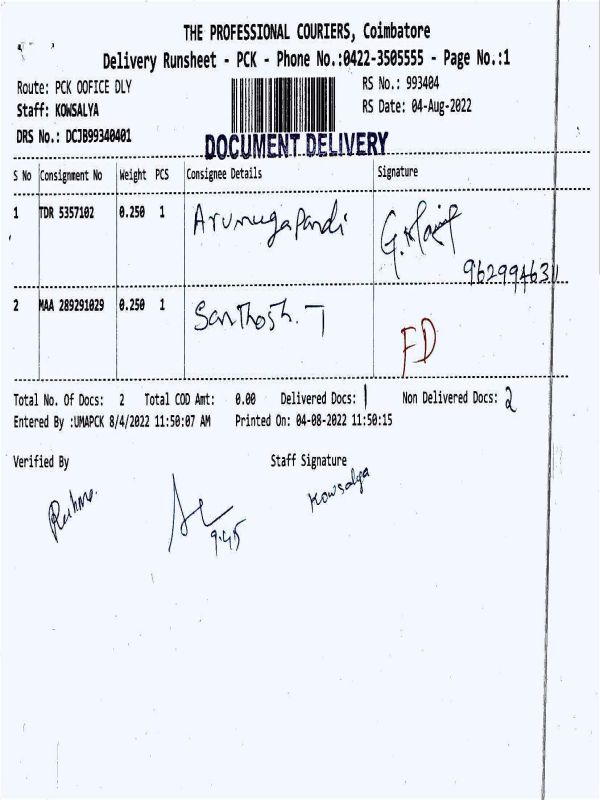 THE PROFESSIONAL COURIERS, Coimbatore
Delivery Runsheet - PCK - Phone No.:0422-3505555 - Page No.:1
Route: PCK OOFICE DLY RS No.: 993404
Staff: KOWSALYA RS Date: 04-Aug-2022
DRS No.: DCJB99340401
DOCUMENT DELIVERY
S No Consignment No Weight PCS Consignee Details Signature
1 TDR 5357102 0.250 1 Arumugapandi
9629994631
2 MAA 289291029 0.250 1 Santhosh. T FD
Total No. Of Docs: 2 Total COD Amt: 0.00 Delivered Docs: 1 Non Delivered Docs: 2
Entered By :UMAPCK 8/4/2022 11:50:07 AM Printed On: 04-08-2022 11:50:15
Verified By Staff Signature
Kowsalya
9.45